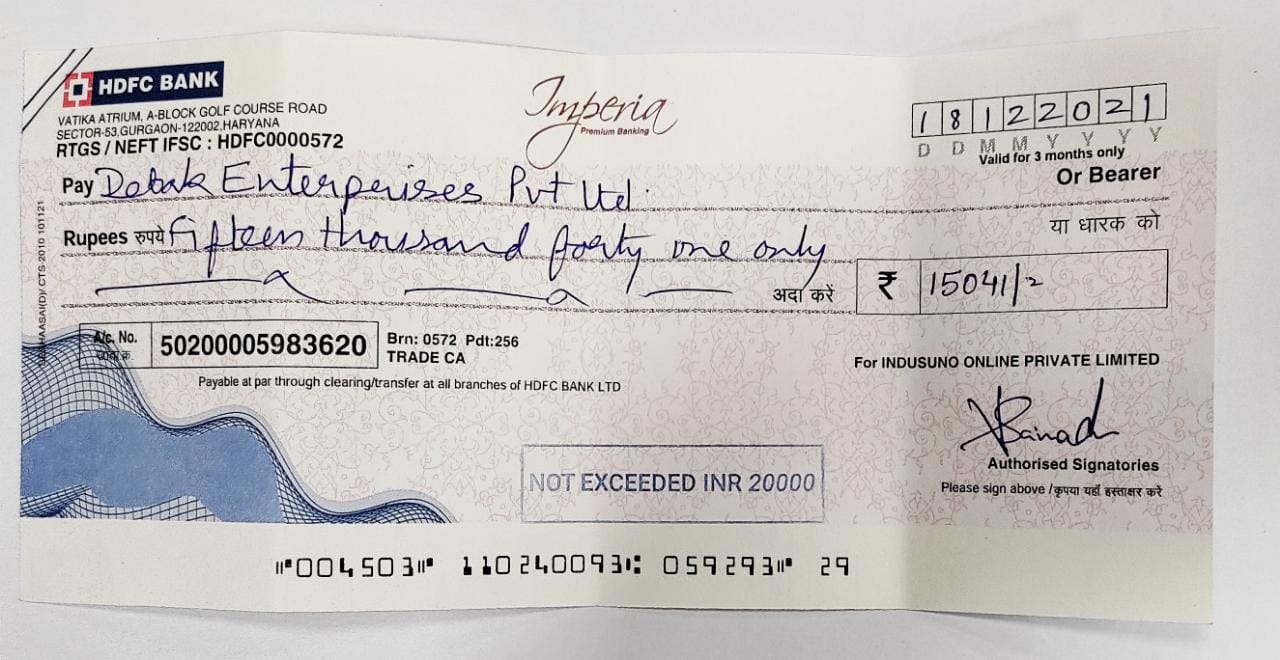 HDFC BANK
VATIKA ATRIUM, A-BLOCK GOLF COURSE ROAD
SECTOR-53,GURGAON-122002,HARYANA
RTGS / NEFT IFSC : HDFC0000572
Imperia
Premium Banking
18122021
D D M M Y Y Y Y
Valid for 3 months only
Pay Debak Enterprises Pvt Ltd.
Or Bearer
या धारक को
Rupees रुपये Fifteen thousand forty one only
अदा करें
₹ 15041/-
CTS-2010 101121
A/c. No. 50200005983620
Brn: 0572 Pdt:256
TRADE CA
Payable at par through clearing/transfer at all branches of HDFC BANK LTD
For INDUSUNO ONLINE PRIVATE LIMITED
NOT EXCEEDED INR 20000
Authorised Signatories
Please sign above /कृपया यहाँ हस्ताक्षर करें
⑈004503⑈ 110240093⑆ 059293⑈ 29